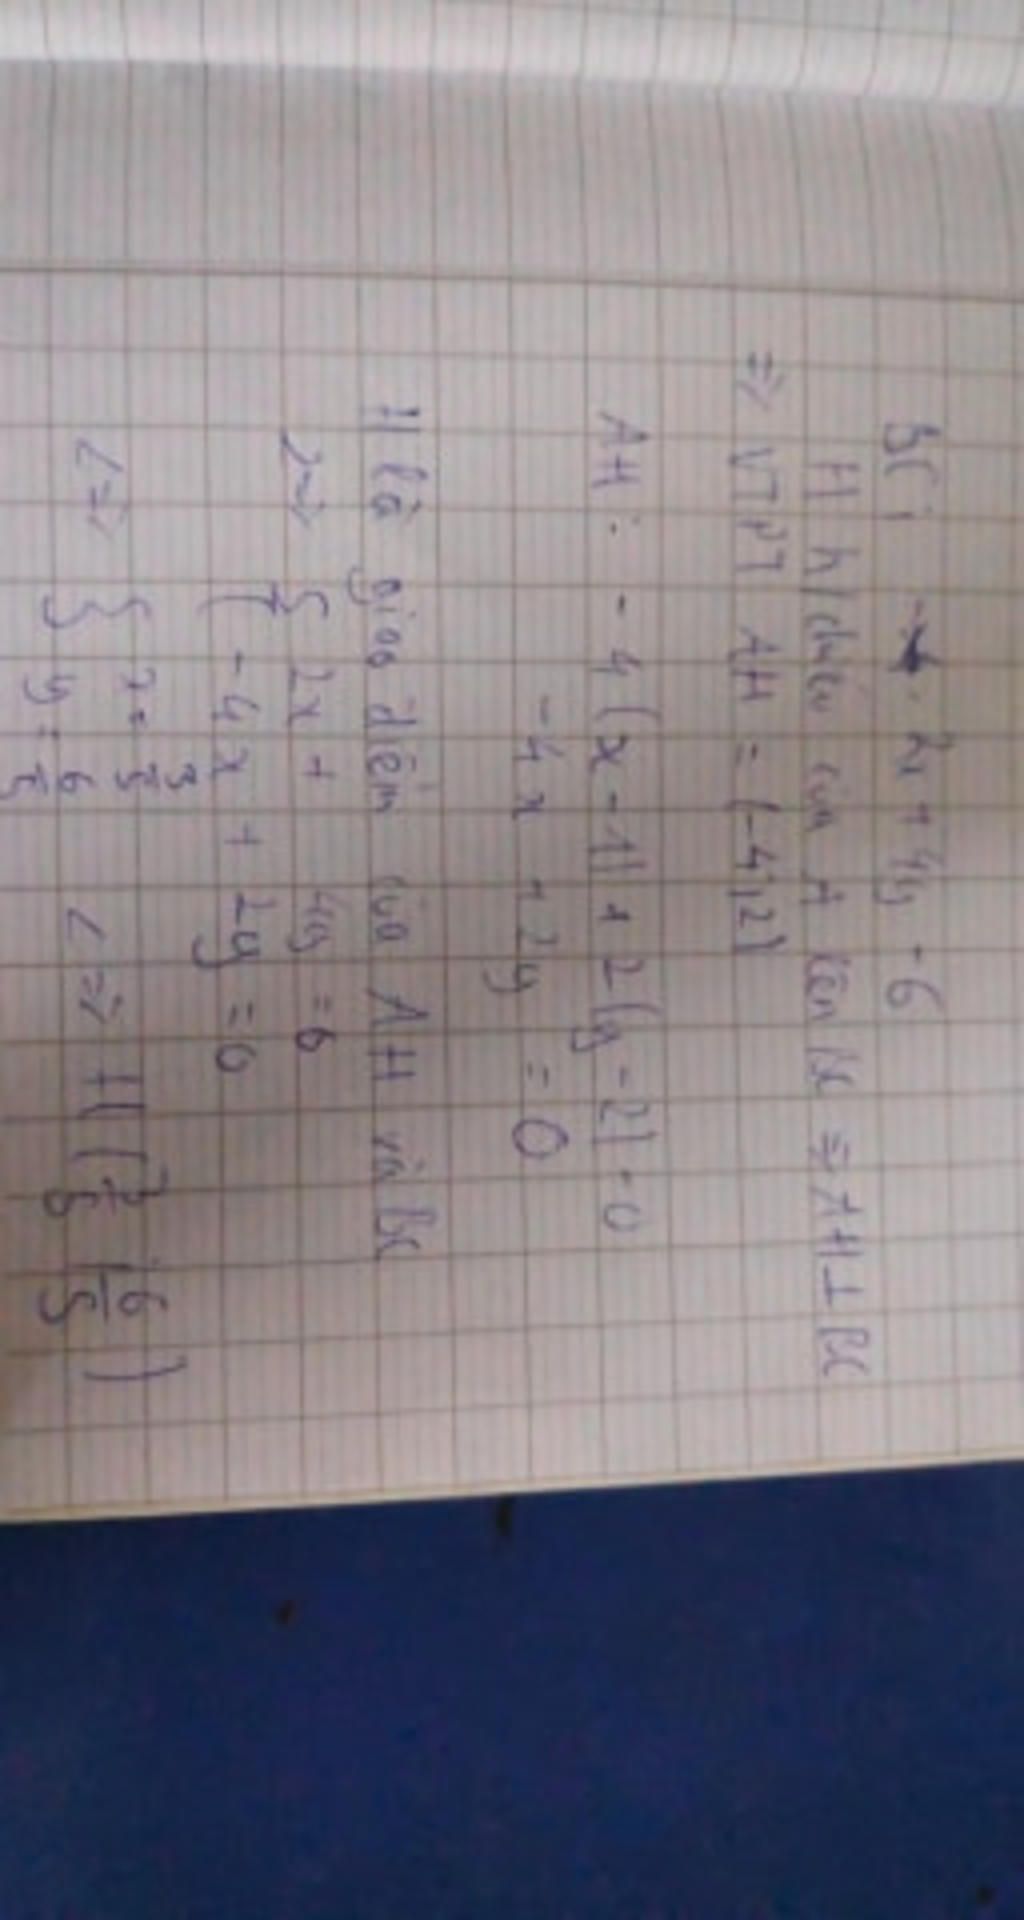 BC: 2x + 4y - 6
H h/chiếu của A lên BC => AH ⊥ BC
=> VTPT AH = (-4,2)
AH: -4(x-1) + 2(y-2) = 0
-4x + 2y = 0
H là giao điểm của AH và BC
<=> { 2x + 4y = 6
{ -4x + 2y = 0
<=> { x = 3/5
{ y = 6/5 <=> H(3/5; 6/5)